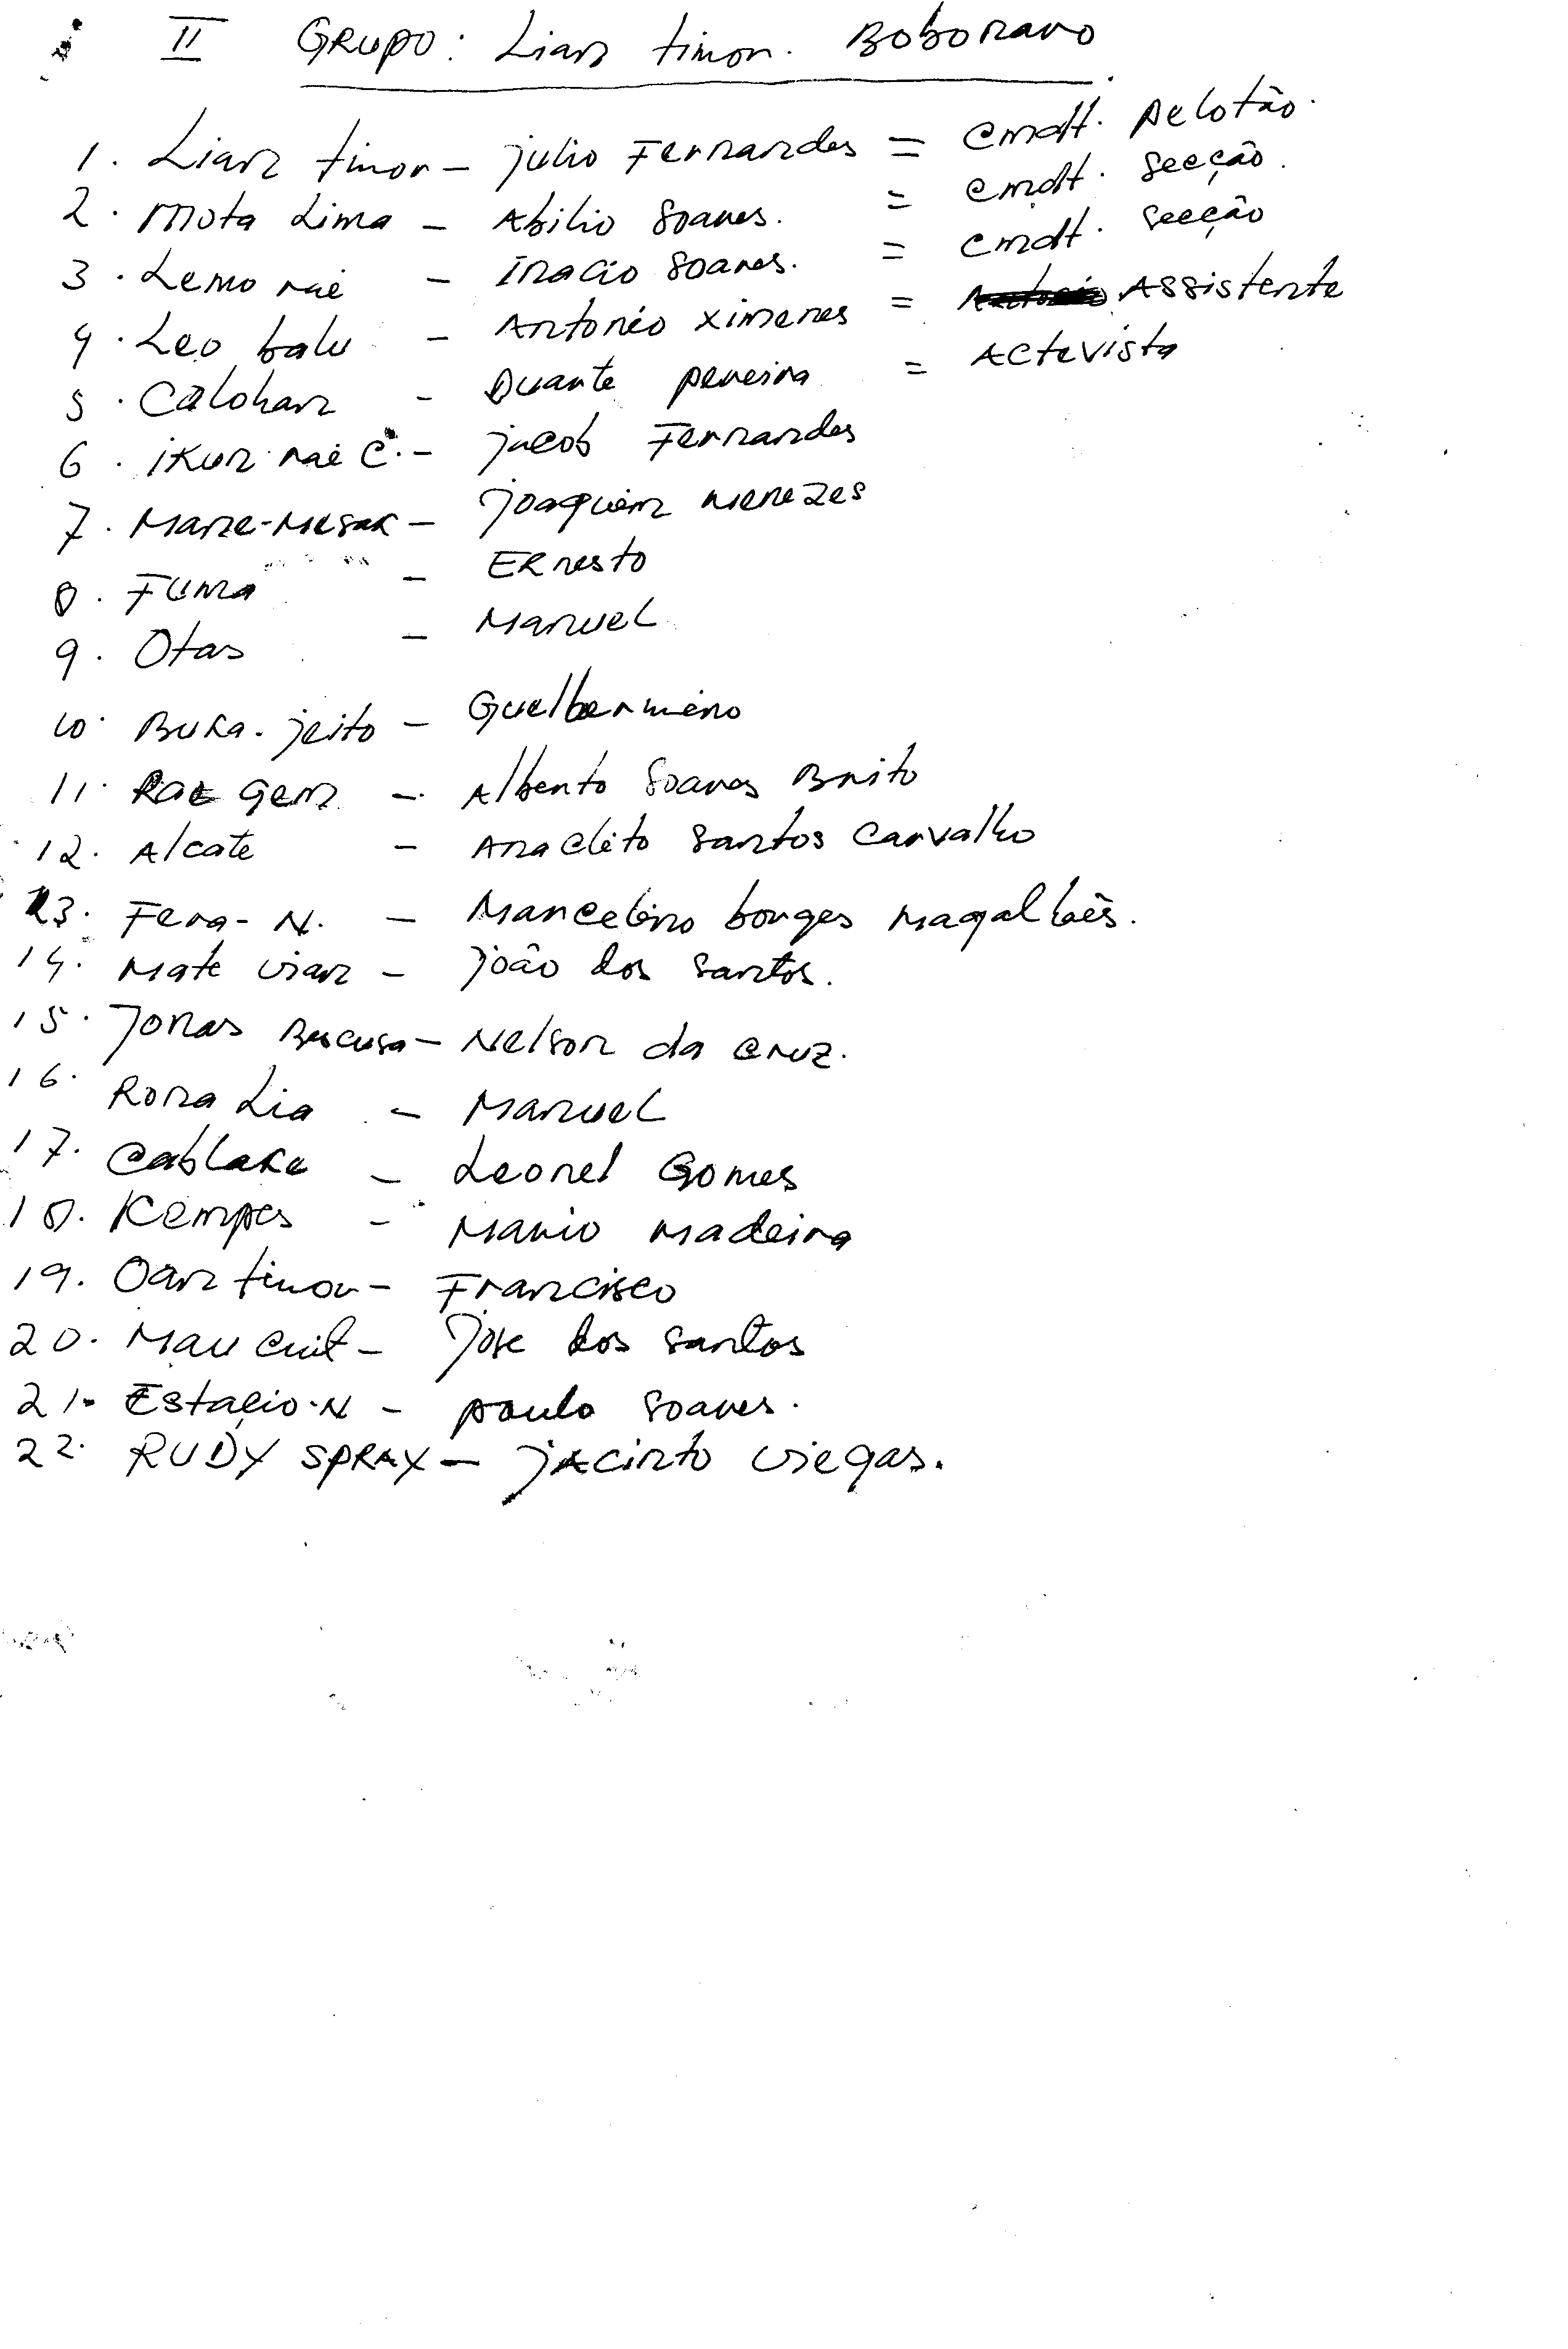 II Grupo: Lian timor. Bobonaro
1. Lian timor - Julio Fernandes = Cmdt. pelotão.
2. Mota Lima - Abilio Soares. = Cmdt. Secção.
3. Lemo naé - Inacio Soares. = Cmdt. Secção
4. Leo balu - Antonéo Ximenes = Assistente
5. Calohan - Duarte pereira = Actevista
6. ikun naé C. - Jacob Fernandes
7. Mane-Mesak - Joaquém Menezes
8. Fuma - Ernesto
9. Otas - Manuel
10. Buka. jeito - Guelherméno
11. Rae Gem - Alberto Soares Brito
12. Alcate - Anacléto Santos Carvalho
13. Fera-N. - Marceléno borges Magalhês.
14. Mate Vian - João dos Santos.
15. Jonas - Nelson da Cruz.
16. Rona Lia - Manuel
17. Cablake - Leonel Gomes
18. Kempes - Mario Madeira
19. Oan timor - Francisco
20. Mau - Jose dos Santos
21. Estaçio.N - paulo Soares.
22. RUDY SPRAY - jAcinto viegas.